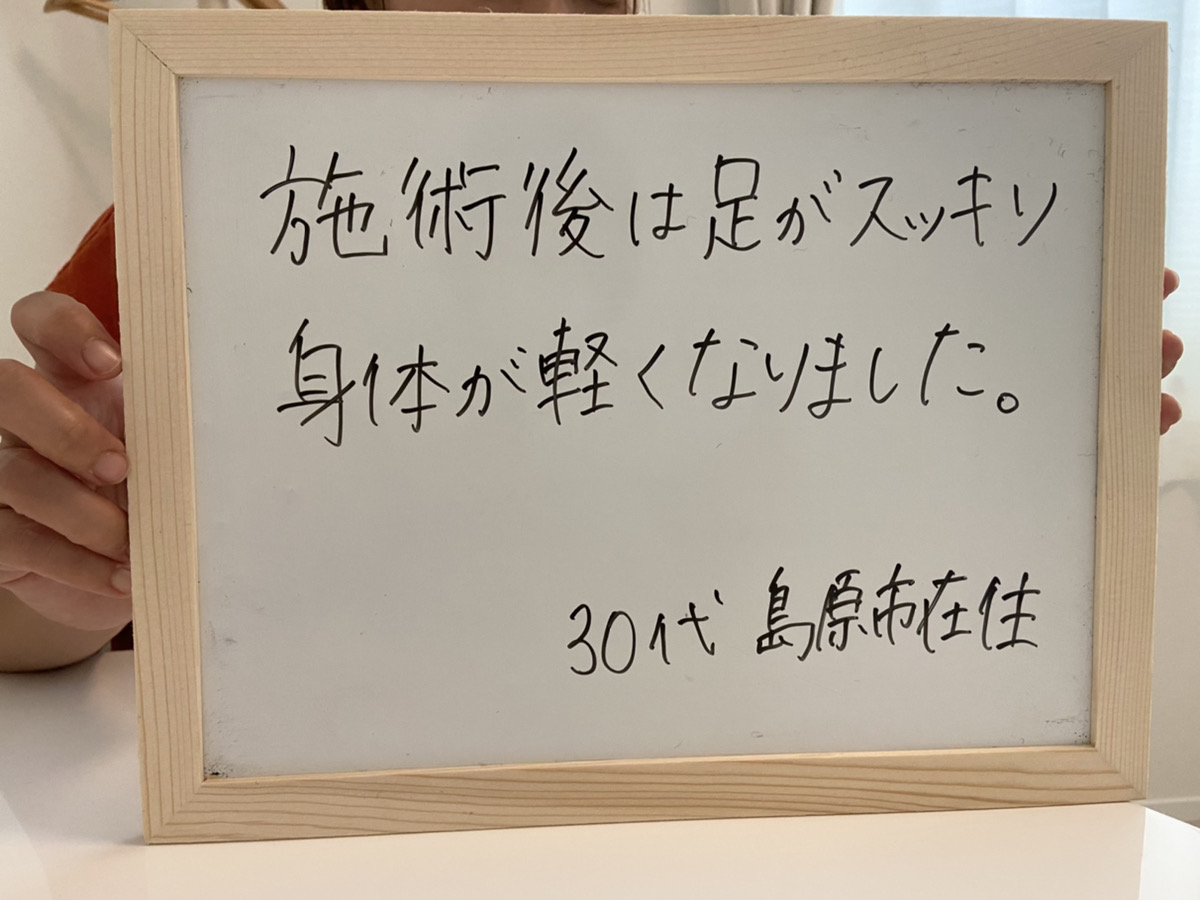 施術後は足がスッキリ
身体が軽くなりました。
30代 島原市在住